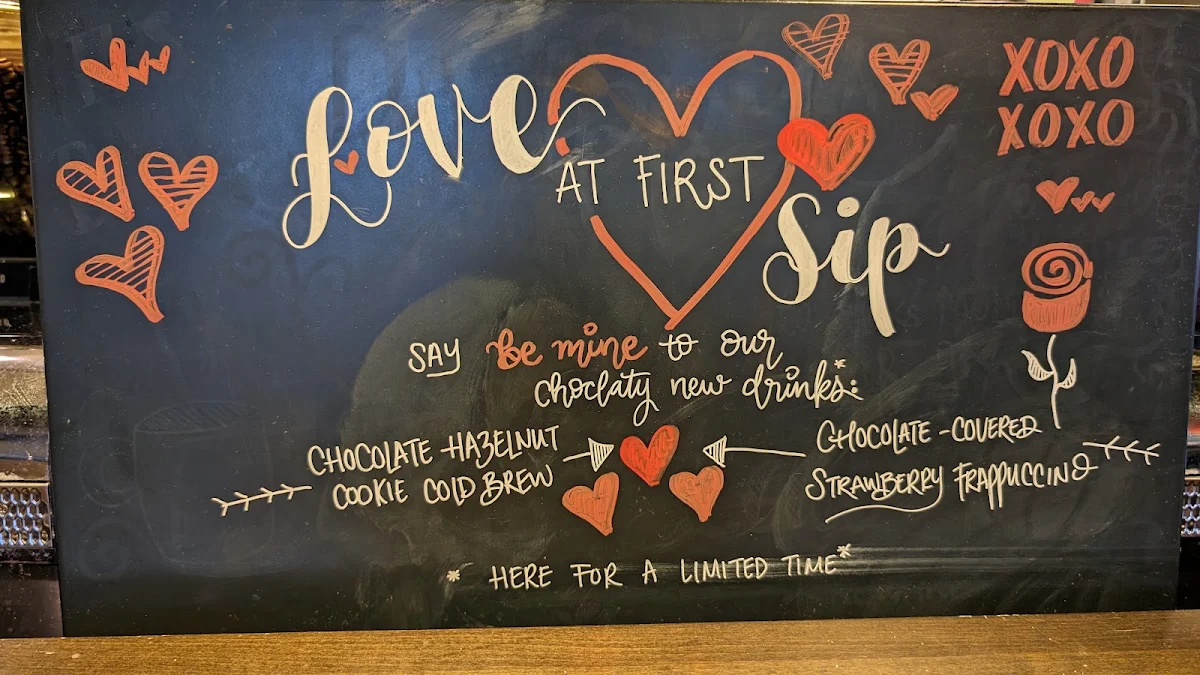 Love
AT FIRST
Sip
XOXO
XOXO
SAY be mine to our
choclaty new drinks*:
CHOCOLATE HAZELNUT
COOKIE COLD BREW
CHOCOLATE-COVERED
STRAWBERRY FRAPPUCCINO
* HERE FOR A LIMITED TIME *